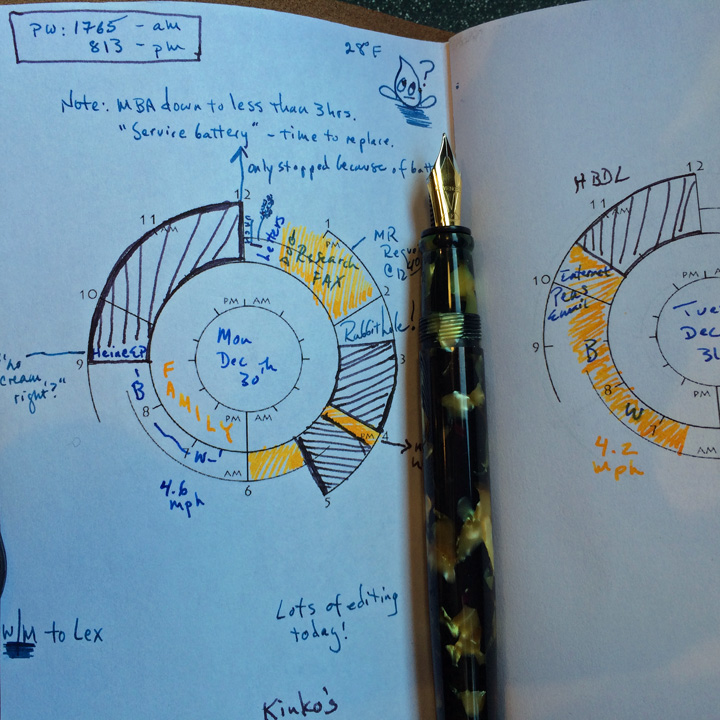 pw: 1765 - am
813 - pm
28°F
?
Note: MBA down to less than 3hrs.
"Service battery" - time to replace.
only stopped because of batt
12
11
AM
10
9
Letters
DoD
Research
FAX
1
MR
2
Rabbithole!
3
PM
4
5
6
AM
PM
AM
Mon
Dec
30th
PM
AM
FAMILY
B
8
W
4.6
mph
cream,
right?"
W/M to Lex
Lots of editing
today!
Kinko's
HBDL
12
11
AM
10
Internet
Email
9
B
8
W
7
4.2
mph
PM
AM
Tue
Dec
31
PM
AM